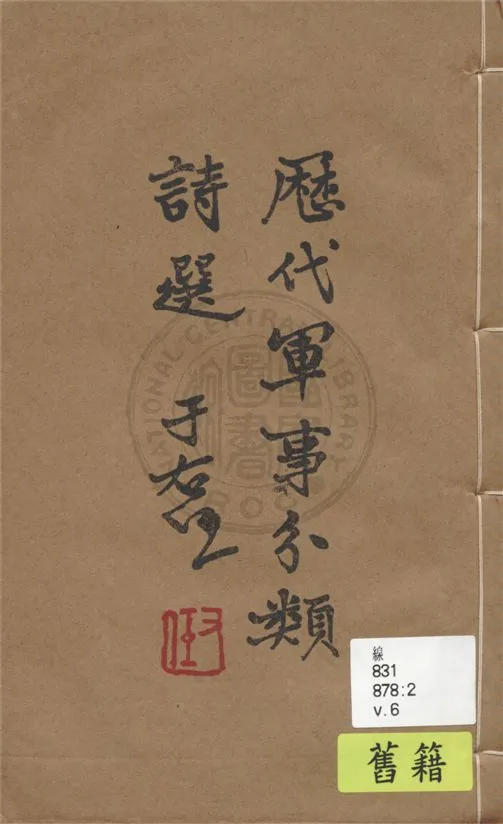 歷代軍事分類
詩選
于右任
NATIONAL CENTRAL LIBRARY
線
831
878:2
v.6
舊籍